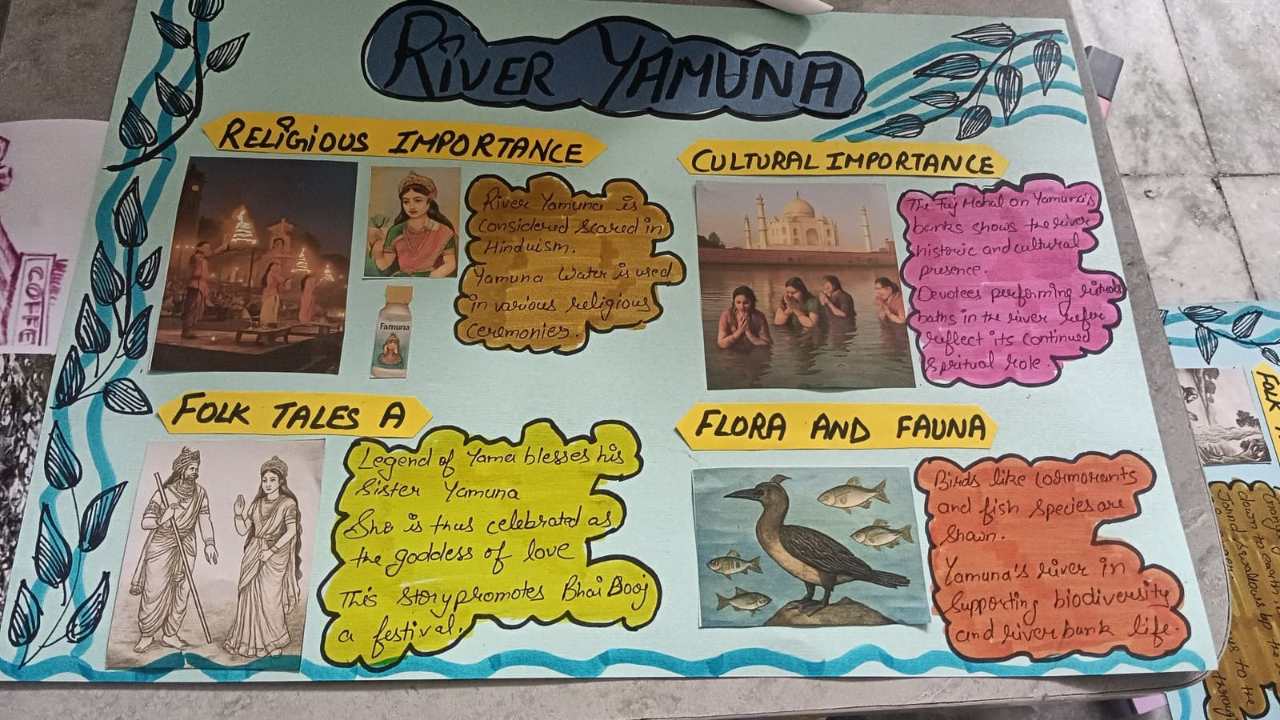 RIVER YAMUNA
RELIGIOUS IMPORTANCE
River Yamuna is
Considered Scared in
Hinduism.
Yamuna Water is used
in various religious
Ceremonies.
Famuna
CULTURAL IMPORTANCE
The Taj Mahal on Yamuna's
banks shows the river
historic and cultural
presence.
Devotees performing rituals
baths in the river refer
reflect its continued
Spritual role.
FOLK TALES A
Legend of Yama blesses his
Sister Yamuna
She is thus celebrated as
the goddess of love
This Story promotes Bhai Dooj
a festival.
FLORA AND FAUNA
Birds like Cormorants
and fish species are
Shown.
Yamuna's river in
Supporting biodiversity
and riverbank life.
COFFEE
FOLK